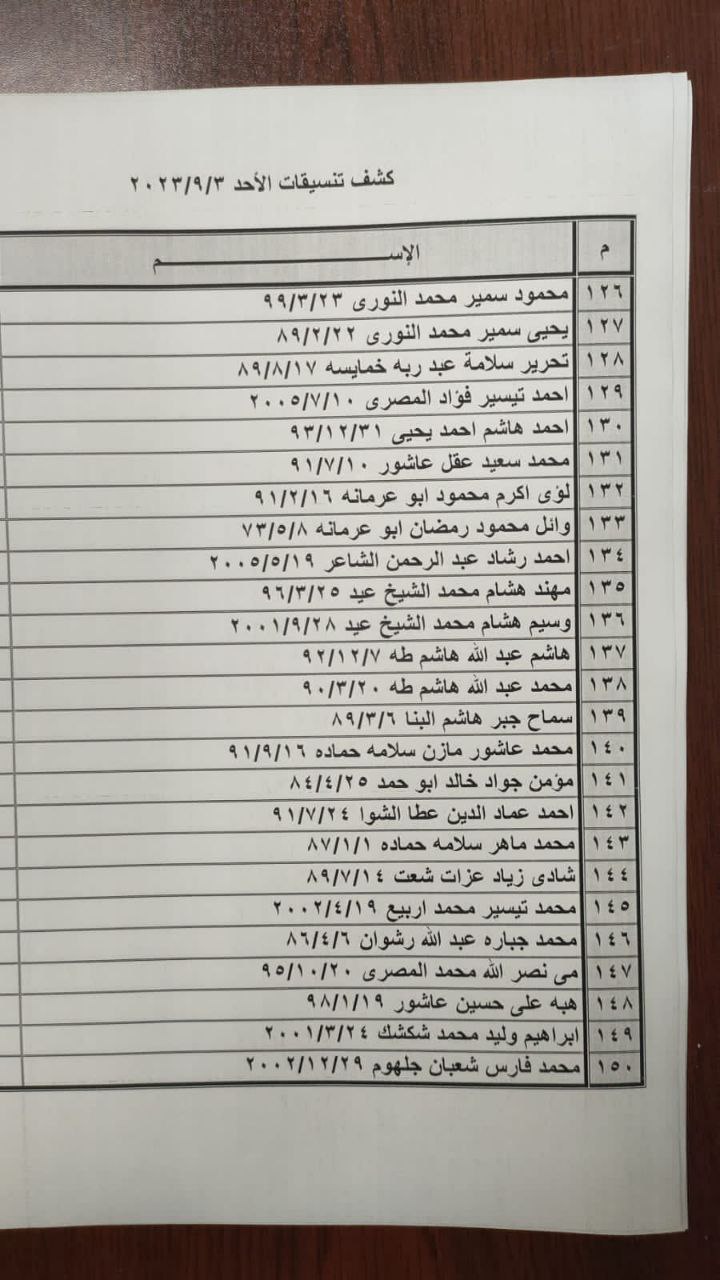 كشف تنسيقات الأحد ٢٠٢٣/٩/٣
م الإســــــــــــــــم
١٢٦ محمود سمير محمد النورى ٩٩/٣/٢٣
١٢٧ يحيى سمير محمد النورى ٨٩/٢/٢٢
١٢٨ تحرير سلامة عبد ربه خمايسه ٨٩/٨/١٧
١٢٩ احمد تيسير فؤاد المصرى ٢٠٠٥/٧/١٠
١٣٠ احمد هاشم احمد يحيى ٩٣/١٢/٣١
١٣١ محمد سعيد عقل عاشور ٩١/٧/١٠
١٣٢ لؤى اكرم محمود ابو عرمانه ٩١/٢/١٦
١٣٣ وائل محمود رمضان ابو عرمانه ٧٣/٥/٨
١٣٤ احمد رشاد عبد الرحمن الشاعر ٢٠٠٥/٥/١٩
١٣٥ مهند هشام محمد الشيخ عيد ٩٦/٣/٢٥
١٣٦ وسيم هشام محمد الشيخ عيد ٢٠٠١/٩/٢٨
١٣٧ هاشم عبد الله هاشم طه ٩٢/١٢/٧
١٣٨ محمد عبد الله هاشم طه ٩٠/٣/٢٠
١٣٩ سماح جبر هاشم البنا ٨٩/٣/٦
١٤٠ محمد عاشور مازن سلامه حماده ٩١/٩/١٦
١٤١ مؤمن جواد خالد ابو حمد ٨٤/٤/٢٥
١٤٢ احمد عماد الدين عطا الشوا ٩١/٧/٢٤
١٤٣ محمد ماهر سلامه حماده ٨٧/١/١
١٤٤ شادى زياد عزات شعت ٨٩/٧/١٤
١٤٥ محمد تيسير محمد اربيع ٢٠٠٢/٤/١٩
١٤٦ محمد جباره عبد الله رشوان ٨٦/٤/٦
١٤٧ مى نصر الله محمد المصرى ٩٥/١٠/٢٠
١٤٨ هبه على حسين عاشور ٩٨/١/١٩
١٤٩ ابراهيم وليد محمد شكشك ٢٠٠١/٣/٢٤
١٥٠ محمد فارس شعبان جلهوم ٢٠٠٢/١٢/٢٩